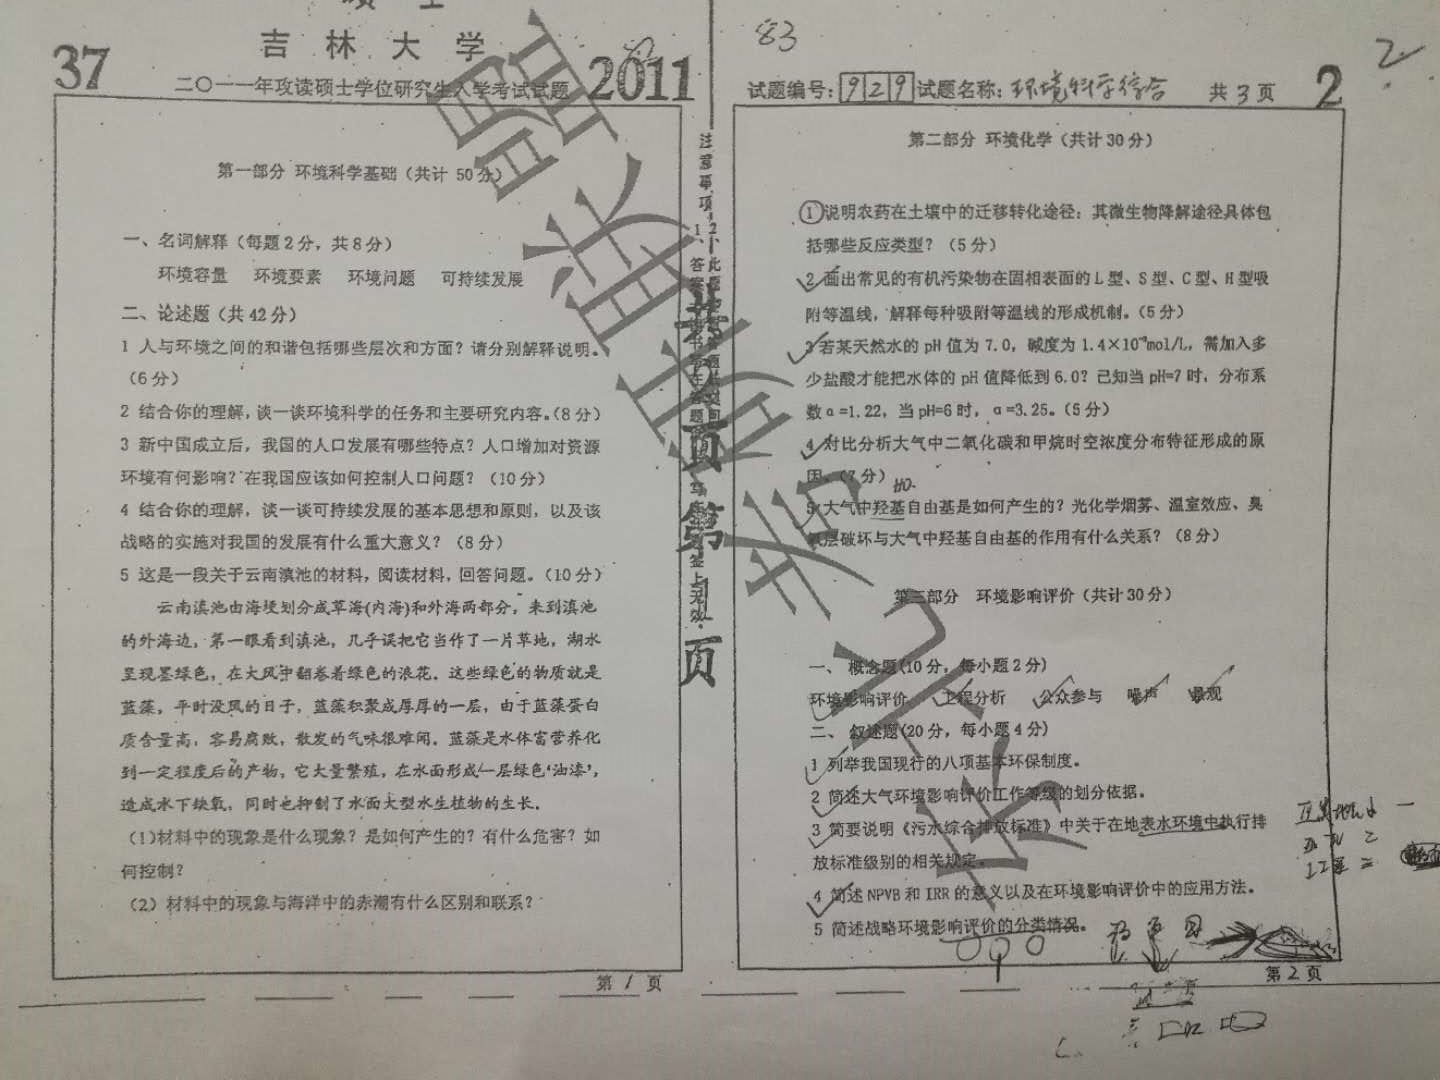 硕 士
吉 林 大 学
37
二〇一一年攻读硕士学位研究生入学考试试题
2011
第一部分 环境科学基础（共计 50分）
一、名词解释（每题2分，共8分）
环境容量 环境要素 环境问题 可持续发展
二、论述题（共42分）
1 人与环境之间的和谐包括哪些层次和方面？请分别解释说明。
（6分）
2 结合你的理解，谈一谈环境科学的任务和主要研究内容。（8分）
3 新中国成立后，我国的人口发展有哪些特点？人口增加对资源
环境有何影响？在我国应该如何控制人口问题？（10分）
4 结合你的理解，谈一谈可持续发展的基本思想和原则，以及该
战略的实施对我国的发展有什么重大意义？（8分）
5 这是一段关于云南滇池的材料，阅读材料，回答问题。（10分）
云南滇池由海埂划分成草海(内海)和外海两部分，来到滇池
的外海边，第一眼看到滇池，几乎误把它当作了一片草地，湖水
呈现墨绿色，在大风中翻卷着绿色的浪花。这些绿色的物质就是
蓝藻，平时没风的日子，蓝藻积聚成厚厚的一层，由于蓝藻蛋白
质含量高，容易腐败，散发的气味很难闻。蓝藻是水体富营养化
到一定程度后的产物，它大量繁殖，在水面形成一层绿色‘油漆’，
造成水下缺氧，同时也抑制了水面大型水生植物的生长。
（1)材料中的现象是什么现象？是如何产生的？有什么危害？如
何控制？
（2）材料中的现象与海洋中的赤潮有什么区别和联系？
第 1 页
注意事项
共 页 第 1 页
83
2
试题编号：929 试题名称：环境科学综合 共 3 页
2
第二部分 环境化学（共计30分）
1 说明农药在土壤中的迁移转化途径；其微生物降解途径具体包
括哪些反应类型？（5分）
2 画出常见的有机污染物在固相表面的L型、S型、C型、H型吸
附等温线，解释每种吸附等温线的形成机制。（5分）
3 若某天然水的pH值为7.0，碱度为1.4×10⁻³mol/L，需加入多
少盐酸才能把水体的pH值降低到6.0？已知当pH=7时，分布系
数α=1.22，当pH=6时，α=3.25。（5分）
4 对比分析大气中二氧化碳和甲烷时空浓度分布特征形成的原
因。（7分）
HO·
5 大气中羟基自由基是如何产生的？光化学烟雾、温室效应、臭
氧层破坏与大气中羟基自由基的作用有什么关系？（8分）
第三部分 环境影响评价（共计30分）
一、 概念题(10分，每小题2分)
环境影响评价 工程分析 公众参与 噪声 景观
二、 叙述题(20分，每小题4分)
1 列举我国现行的八项基本环保制度。
2 简述大气环境影响评价工作等级的划分依据。
3 简要说明《污水综合排放标准》中关于在地表水环境中执行排
放标准级别的相关规定。
4 简述NPVB和IRR的意义以及在环境影响评价中的应用方法。
5 简述战略环境影响评价的分类情况。
第 2 页